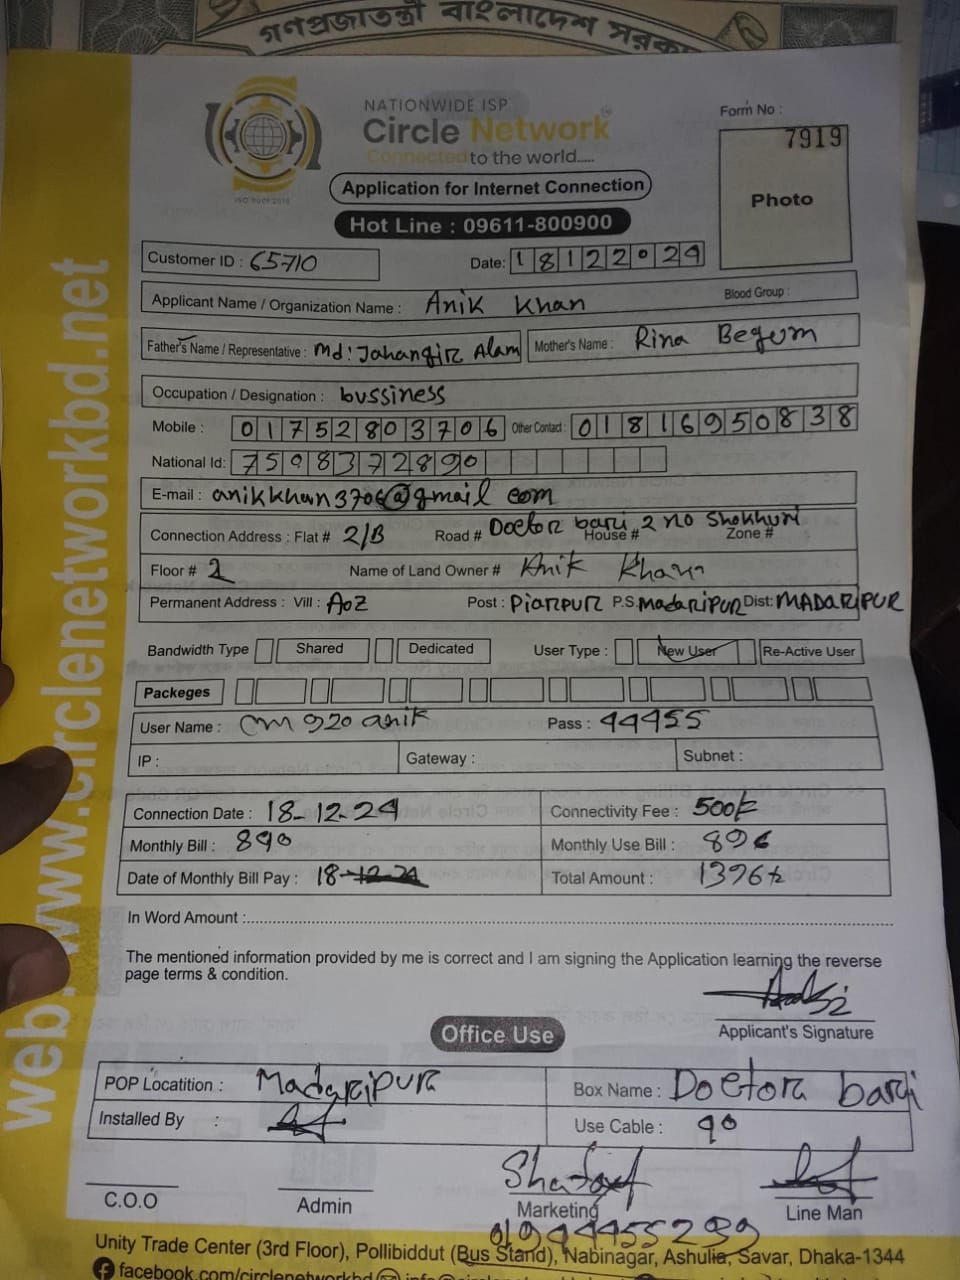 গণপ্রজাতন্ত্রী বাংলাদেশ সরকা
web: www.circlenetworkbd.net
NATIONWIDE ISP
Circle Network
Connected to the world.....
ISO 9001:2015
Form No :
7919
Photo
Application for Internet Connection
Hot Line : 09611-800900
Customer ID : 65710
Date: 18122024
Applicant Name / Organization Name : Anik Khan
Blood Group :
Father's Name / Representative : Md: Jahangir Alam
Mother's Name : Rina Begum
Occupation / Designation : bussiness
Mobile : 01752803706 Other Contact : 01816950838
National Id: 7598372890
E-mail : anikkhan3706@gmail com
Connection Address : Flat # 2/B Road # Doctor bari, 2 no Shokhuni House # Zone #
Floor # 2 Name of Land Owner # Anik Khan
Permanent Address : Vill : AOZ Post : PiarPUR P.S. MadariPUR Dist: MADARIPUR
Bandwidth Type Shared Dedicated User Type : New User Re-Active User
Packeges
User Name : cm 920 anik Pass : 44455
IP : Gateway : Subnet :
Connection Date : 18-12-24 Connectivity Fee : 500/-
Monthly Bill : 890 Monthly Use Bill : 896
Date of Monthly Bill Pay : 18-12-24 Total Amount : 1396/-
In Word Amount :
The mentioned information provided by me is correct and I am signing the Application learning the reverse
page terms & condition.
Applicant's Signature
Office Use
POP Locatition : Madaripur Box Name : Doctor bari
Installed By : Use Cable : 90
C.O.O Admin Marketing Line Man
01944455239
Unity Trade Center (3rd Floor), Pollibiddut (Bus Stand), Nabinagar, Ashulia, Savar, Dhaka-1344
facebook.com/circlenetworkbd